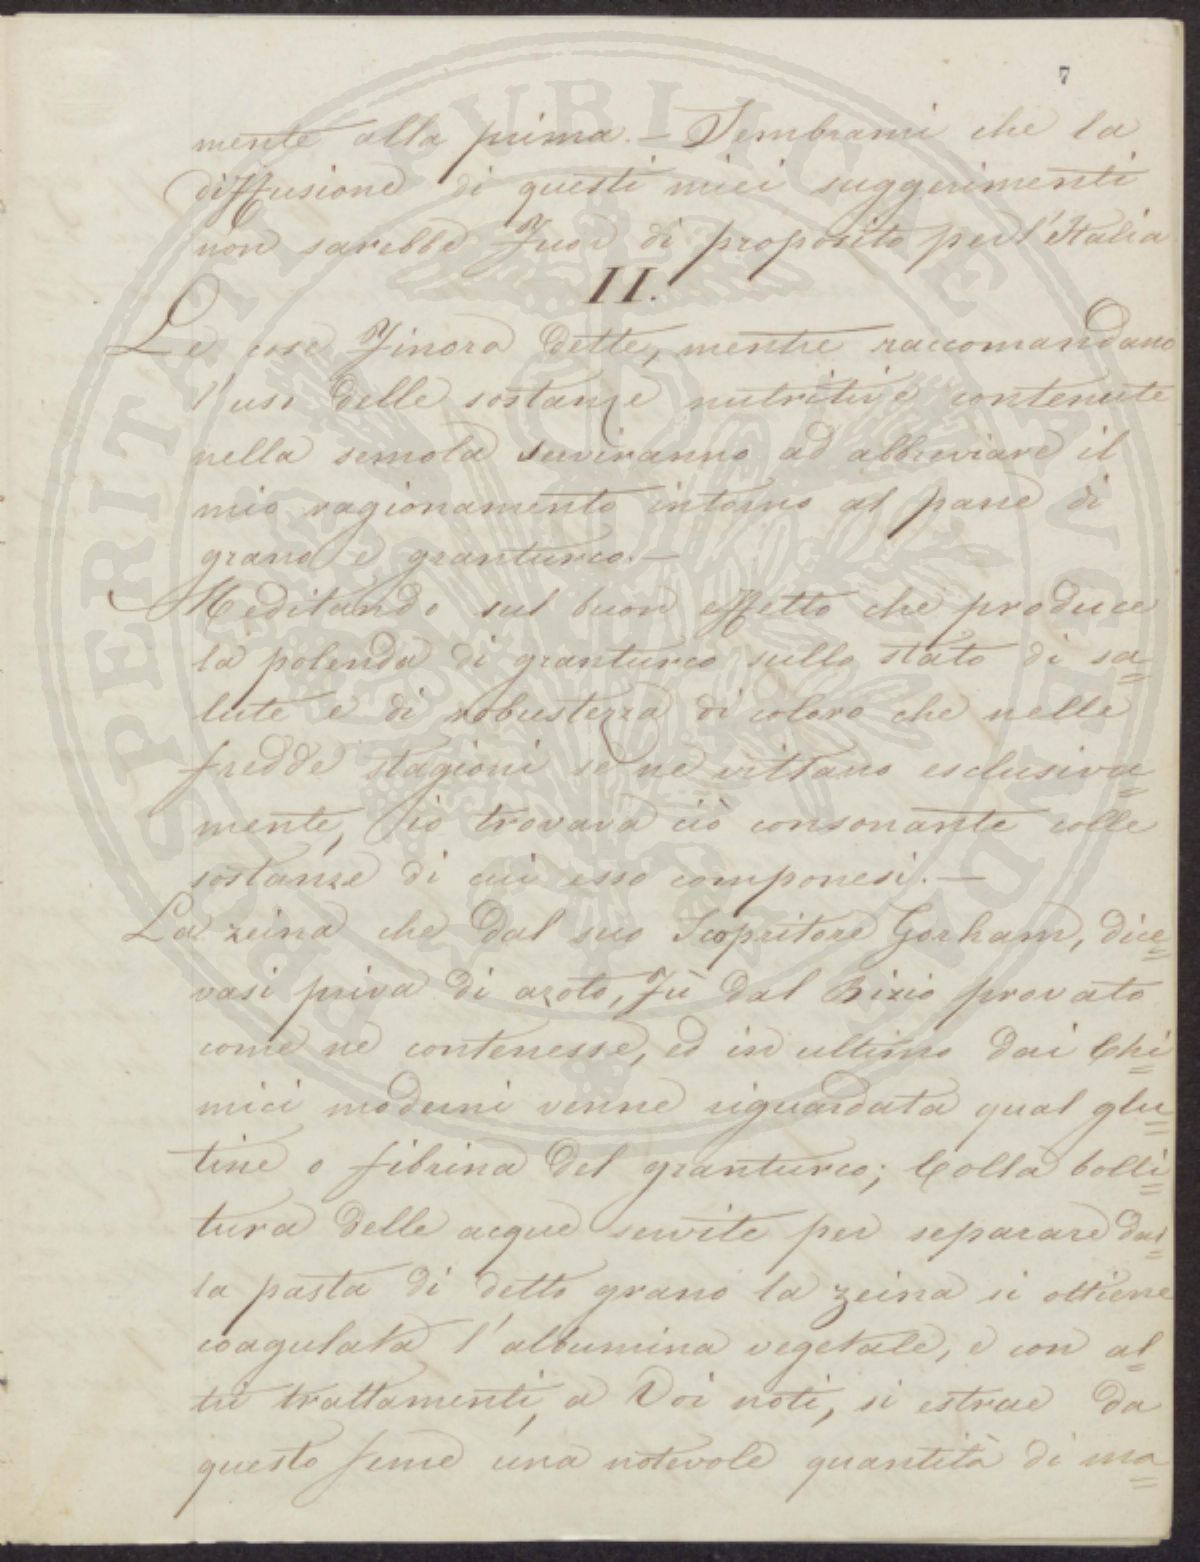 7
mente alla prima. — Sembrami che la
diffusione di questi miei suggerimenti
non sarebbe fuor di proposito per l'Italia
II.
Le cose finora dette, mentre raccomandano
l'uso delle sostanze nutritive contenute
nella semola serviranno ad abbreviare il
mio ragionamento intorno al pane di
grano e granturco. —
Meditando sul buon effetto che produce
la polenda di granturco sullo stato di sa=
lute e di robustezza di coloro che nelle
fredde stagioni se ne vittano esclusiva=
mente, io trovava ciò consonante colle
sostanze di cui esso componesi. —
La zeina che dal suo Scopritore Gorham, dice=
vasi priva di azoto, fù dal Bizio provato
come ne contenesse, ed in ultimo dai Chi=
mici moderni venne riguardata qual glu=
tine o fibrina del granturco; Colla bolli=
tura delle acque servite per separare dal=
la pasta di detto grano la zeina si ottiene
coagulata l'albumina vegetale, e con al=
tri trattamenti, a Voi noti, si estrae da
questo seme una notevole quantità di ma=
PROSPERITATI PUBLICAE AUGENDAE